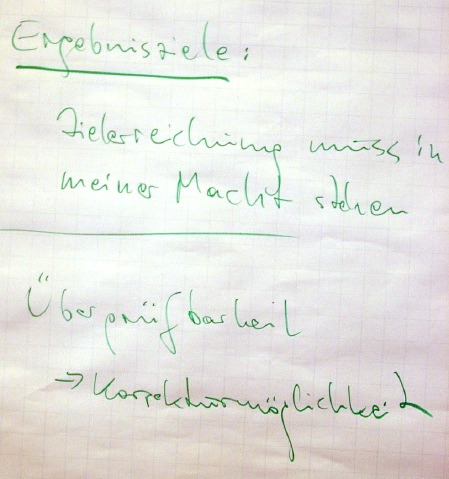 Ergebnisziele:
Zielerreichung muss in
meiner Macht stehen
Überprüfbarkeit
→ Korrekturmöglichkeit